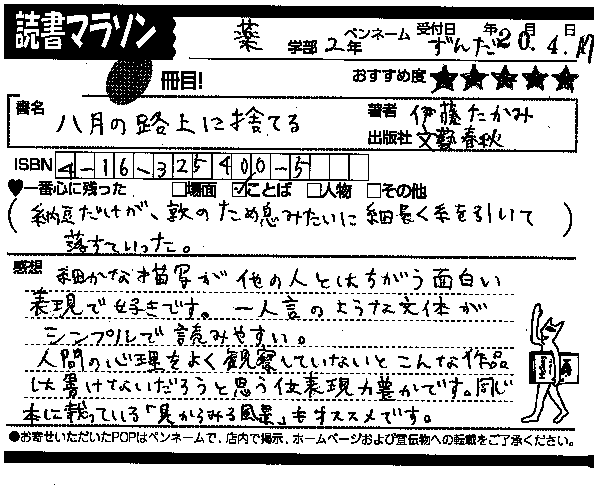 読書マラソン
薬 学部 2年 ペンネーム ずんだ 受付日 20年 4月 17日
冊目!
おすすめ度 ★★★★★
書名 八月の路上に捨てる
著者 伊藤たかみ
出版社 文藝春秋
ISBN 4-16-325400-5
♥一番心に残った □場面 ☑ことば □人物 □その他
(納豆だけが、欽のため息みたいに細長く糸を引いて
落ちていった。)
感想 細かな描写が他の人とはちがう面白い
表現で好きです。一人言のような文体が
シンプルで読みやすい。
人間の心理をよく観察していないとこんな作品
は書けないだろうと思う位表現力豊かです。同じ
本に載っている「貝からみる風景」もオススメです。
●お寄せいただいたPOPはペンネームで、店内で掲示、ホームページおよび宣伝物への転載をご了承ください。